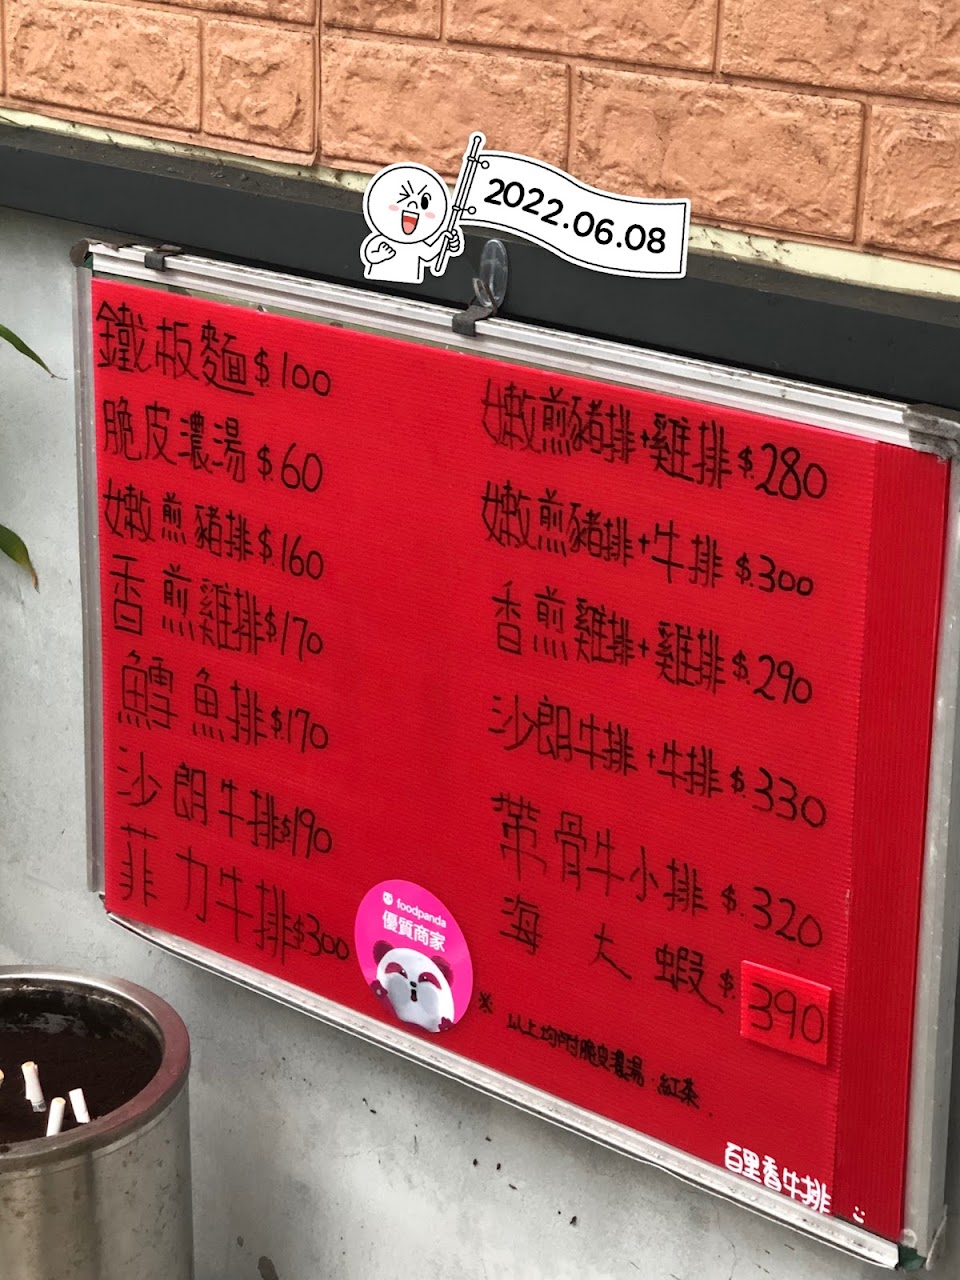 2022.06.08
鐵板麵$100
脆皮濃湯$.60
嫩煎豬排$.160
香煎雞排$.170
鱈魚排$.170
沙朗牛排$.190
菲力牛排$300
嫩煎豬排+雞排$.280
嫩煎豬排+牛排$.300
香煎雞排+雞排$.290
沙朗牛排+牛排$.330
帶骨牛小排$.320
海大蝦$.390
foodpanda
優質商家
※以上均附脆皮濃湯.紅茶
百里香牛排